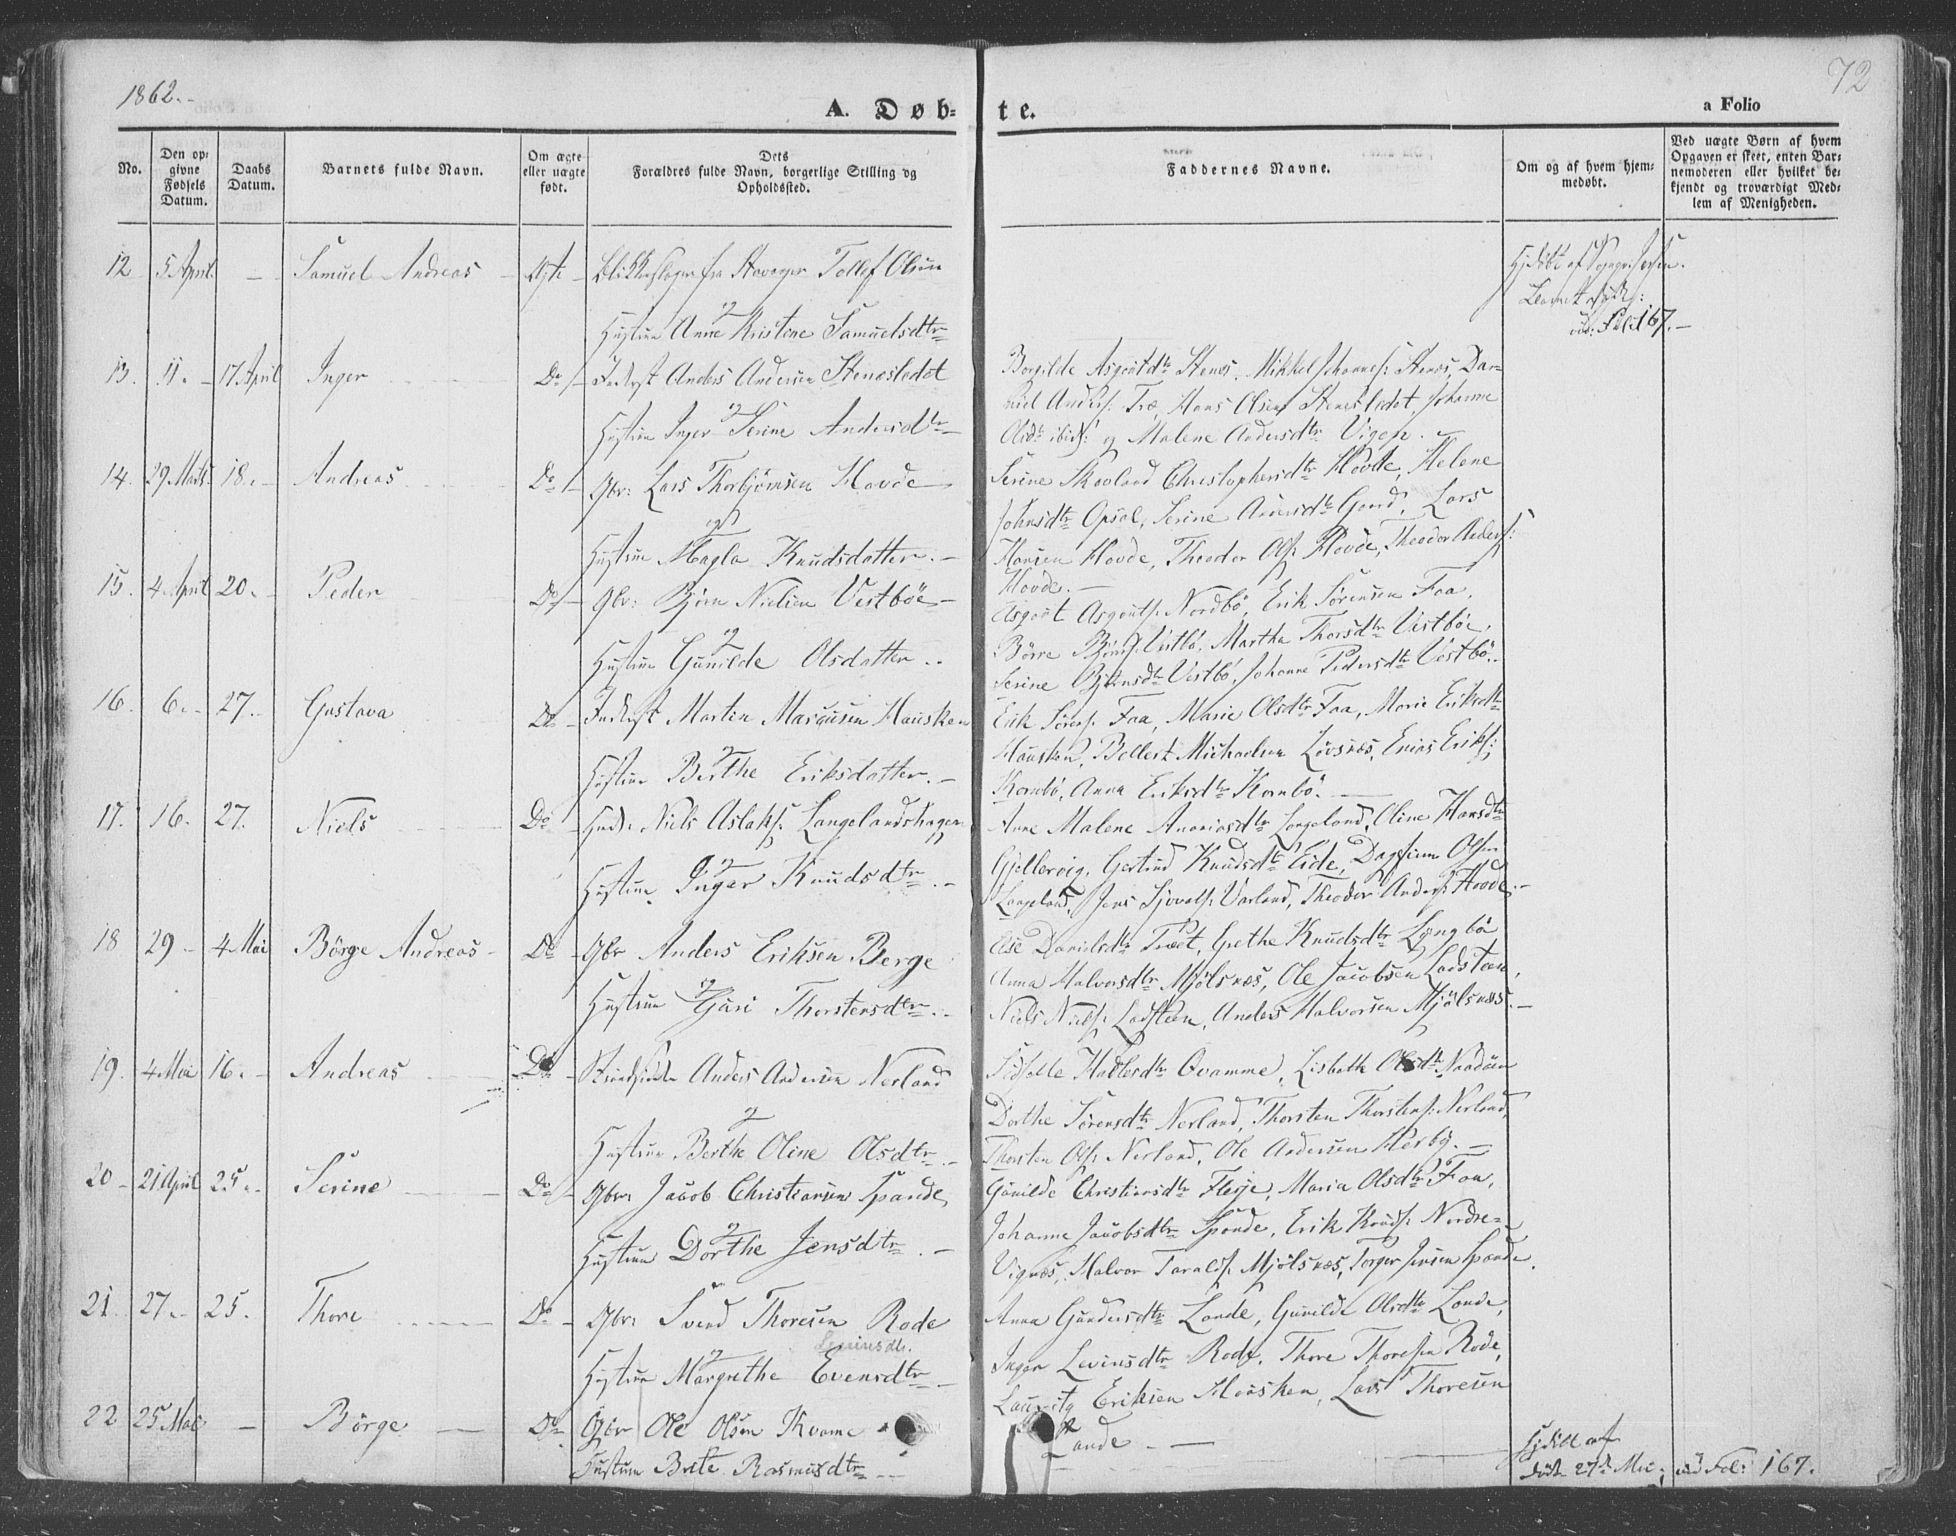 1862.
72
A. Døb=
te.
a Folio
No.
Den op=
givne
Fødsels
Datum.
Daabs
Datum.
Barnets fulde Navn.
Om ægte
eller uægte
født.
Dets
Forældres fulde Navn, borgerlige Stilling og
Opholdssted.
Faddernes Navne.
Om og af hvem hjem=
medøbt.
Ved uægte Børn af hvem
Opgaven er skeet, enten Bar=
nemoderen eller hvilket be=
kjendt og troværdigt Med=
lem af Menigheden.
12 5 April. Samuel Andreas Ægte Blikkenslager fra Stavanger Tollef Olsen
og
Hustrue Anne Kristene Samuelsdtr
Hjdöbt af
vid: Fol: 167.
13. 11. 17 April Inger Do Inderst Anders Andersen Stenesledet
og
Hustrue Inger Serine Andersdtr
Borgilde Asgautdtr Stenes, Mikkel Johannes: Stenes, Da=
niel Anders: Træ, Hans Olsen Stenesledet, Johanne
Olsdtr ibid: og Malene Andersdtr Vigen.
14. 29 Marts 18. Andreas Do Gbr: Lars Thorbjörnsen Hovde
og
Hustrue Magla Knudsdatter.
Serine Skovland Christophersdtr Hovde, Helene
Johnsdtr Opsal, Serine Gaard, Lars
Hansen Hovde, Theodor Ols: Hovde, Theodor Anders:
Hovde.
15. 4 April 20. Peder Do Gbr: Björn Nielsen Vestböe
og
Hustrue Gunilde Olsdatter.
Asgaut Asgauts: Nordbö, Erik Sörensen Faa,
Börre Björns: Vestbö, Martha Thorsdtr Vestböe,
Serine Björnsdtr Vestbö, Johanne Pedersdtr Vestbö.
16. 6. 27. Gustava Do Inderst Martin Hausken
og
Hustrue Berthe Eriksdatter.
Erik Sörens: Faa, Marie Olsdtr Faa, Marie Eriksdtr
Hausken, Bellert Michaelsen Lövsnæs, Enias Eriks:
Kornbö, Anna Eriksdtr Kornbö.
17. 16. 27. Niels Do Niels Aslaks: Langelandshagen
og
Hustrue Inger Knudsdtr.
Anne Malene Ananiasdtr Langeland, Oline Hansdtr
Gjellervig, Gertrud Knudsdtr Eide, Dagfinn Olsen
Langeland, Jens Varland, Theodor Anders: Hovde.
18 29 4 Mai Börge Andreas Do Gbr Anders Eriksen Berge
og
Hustrue Guri Thorstensdtr.
Else Danielsdtr Træet, Grethe Knudsdtr Lyngbö
Anna Halvorsdtr Mjölsnæs, Ole Jacobsen Ladsteen,
Niels Niels: Ladsteen, Anders Halvorsen Mjölsnæs.
19. 4 Mai 16. Andreas Do Strandsidder Anders Andersen Nerland
og
Hustrue Berthe Oline Olsdtr
Hallesdtr Qvamme, Lisbeth Olsdtr Naadöen
Dorthe Sörensdtr Nerland, Thorsten Thorstens: Nerland,
Thorsten Ols: Nerland, Ole Andersen Hesby.
20 21 April 25. Serine Do Gbr: Jacob Christiansen Spande
og
Hustrue Dorthe Jensdtr.
Gunilde Christiansdtr Flesje, Maria Olsdtr Faa,
Johanne Jacobsdtr Spande, Erik Knuds: Nordre=
Vignæs, Halvor Taralds: Mjölsnæs, Torger Jensen Spande.
21. 27. 25. Thore Do Gbr: Svend Thoresen Rode
og
Levinsdtr.
Hustrue Margrethe Evensdtr
Anna Gundersdtr Lande, Gunilde Olsdtr Lande,
Inger Levinsdtr Rode, Thore Thoresen Rode,
Lauritz Eriksen Hausken, Lars Thoresen
Lande.
22 25 Mai Börge Do Gbr Ole Olsen Kvame
Hustrue Brite Rasmusdtr
Hjdöbt af
död 27de Mai, vid Fol: 167.